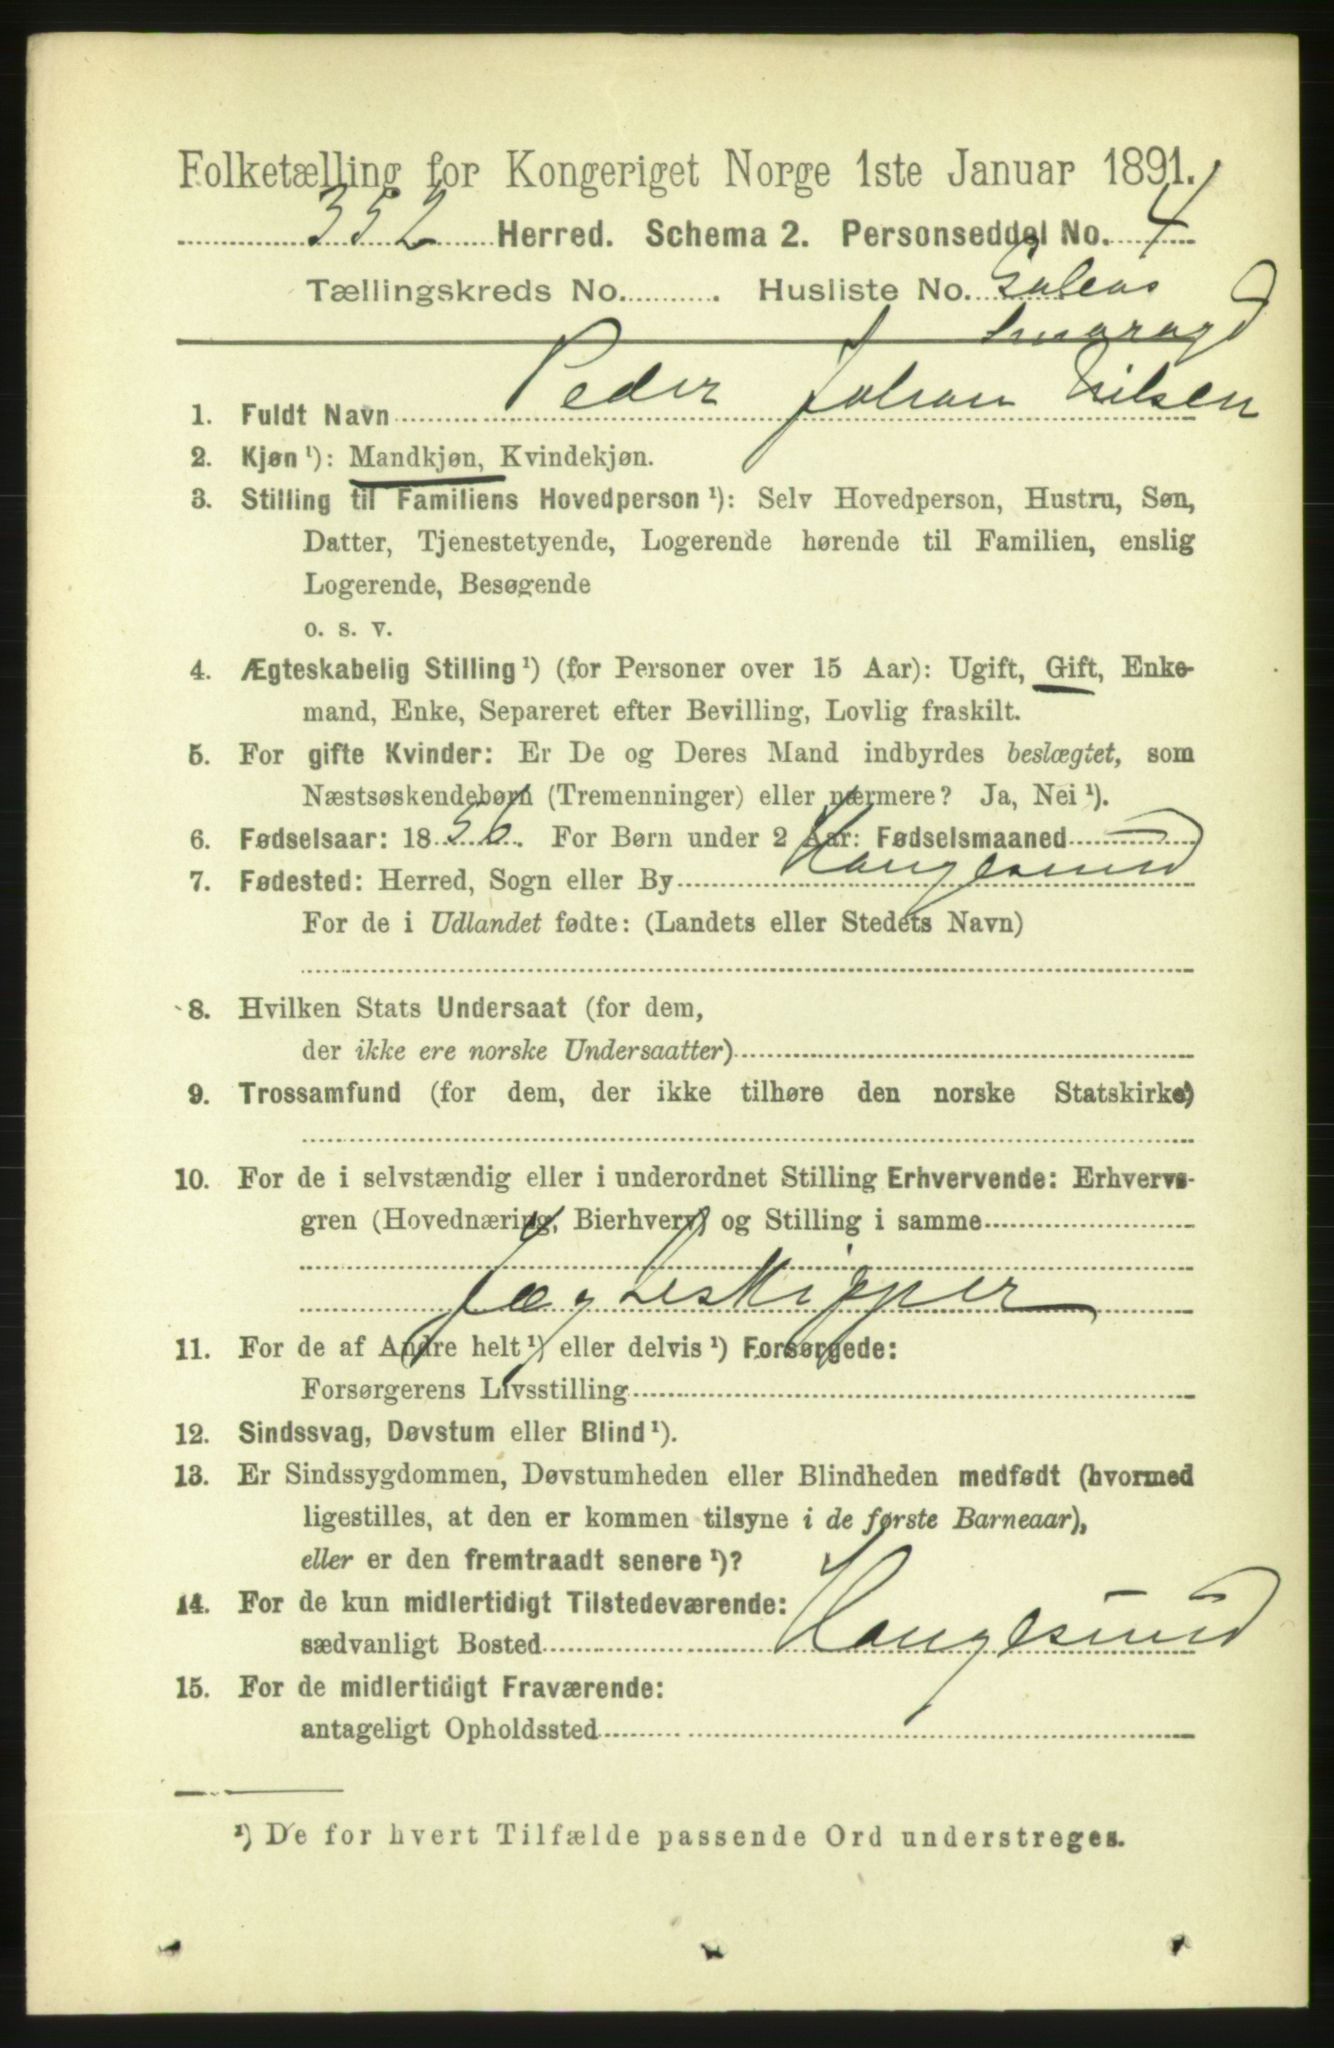 Folketælling for Kongeriget Norge 1ste Januar 1891.
352 Herred. Schema 2. Personseddel No. 4
Tællingskreds No. . Husliste No. Galeas
Smaragd
1. Fuldt Navn Peder Johan Nilsen
2. Kjøn ¹): Mandkjøn, Kvindekjøn.
3. Stilling til Familiens Hovedperson ¹): Selv Hovedperson, Hustru, Søn,
Datter, Tjenestetyende, Logerende hørende til Familien, enslig
Logerende, Besøgende
o. s. v.
4. Ægteskabelig Stilling ¹) (for Personer over 15 Aar): Ugift, Gift, Enke-
mand, Enke, Separeret efter Bevilling, Lovlig fraskilt.
5. For gifte Kvinder: Er De og Deres Mand indbyrdes beslægtet, som
Næstsøskendebørn (Tremenninger) eller nærmere? Ja, Nei ¹).
6. Fødselsaar: 1856. For Børn under 2 Aar: Fødselsmaaned
7. Fødested: Herred, Sogn eller By Haugesund
For de i Udlandet fødte: (Landets eller Stedets Navn)
8. Hvilken Stats Undersaat (for dem,
der ikke ere norske Undersaatter)
9. Trossamfund (for dem, der ikke tilhøre den norske Statskirke)
10. For de i selvstændig eller i underordnet Stilling Erhvervende: Erhvervs-
gren (Hovednæring, Bierhverv) og Stilling i samme
Jægteskipper
11. For de af Andre helt ¹) eller delvis ¹) Forsørgede:
Forsørgerens Livsstilling
12. Sindssvag, Døvstum eller Blind ¹).
13. Er Sindssygdommen, Døvstumheden eller Blindheden medfødt (hvormed
ligestilles, at den er kommen tilsyne i de første Barneaar),
eller er den fremtraadt senere ¹)?
14. For de kun midlertidigt Tilstedeværende:
sædvanligt Bosted Haugesund
15. For de midlertidigt Fraværende:
antageligt Opholdssted
¹) De for hvert Tilfælde passende Ord understreges.